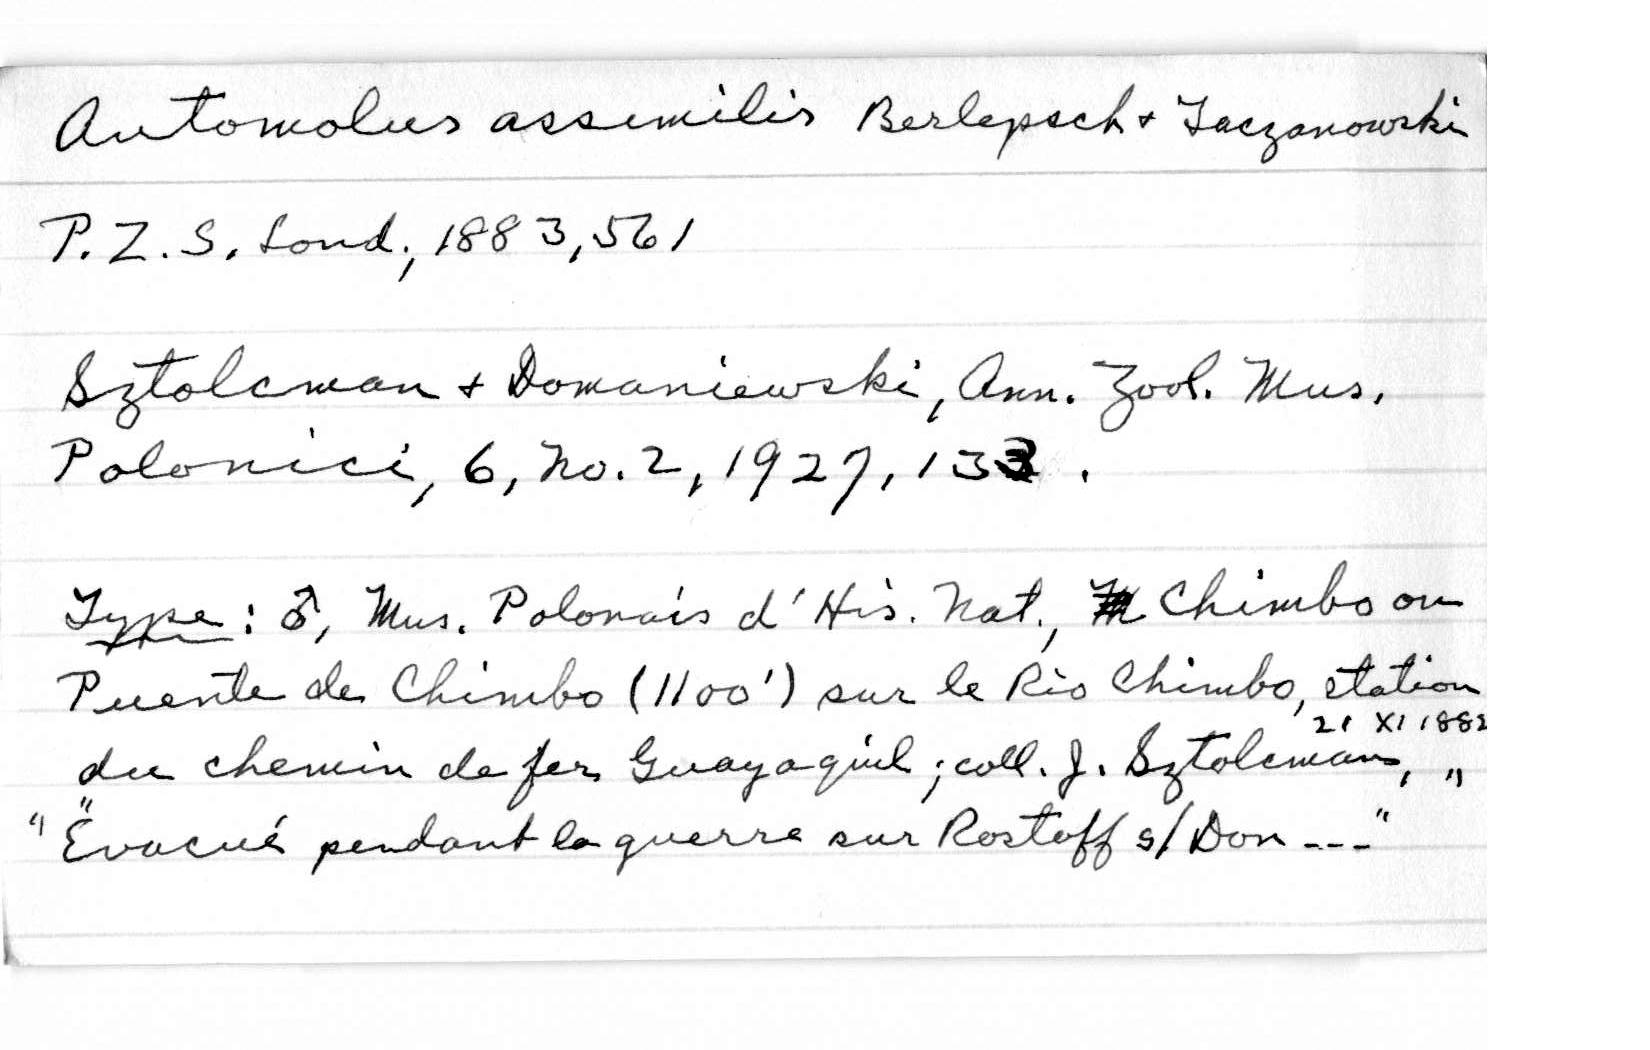 Automolus assimilis Berlepsch + Taczanowski
P. Z. S. Lond., 1883, 561
Sztolcman + Domaniewski, Ann. Zool. Mus.
Polonici, 6, No. 2, 1927, 133.
Type: ♂, Mus. Polonais d'His. Nat., Chimbo ou
Puente de Chimbo (1100') sur le Rio Chimbo, station
21 XI 1882
du chemin de fer Guayaquil; coll. J. Sztolcman, "
" Evacué pendant la guerre sur Rostoff s/Don ---"